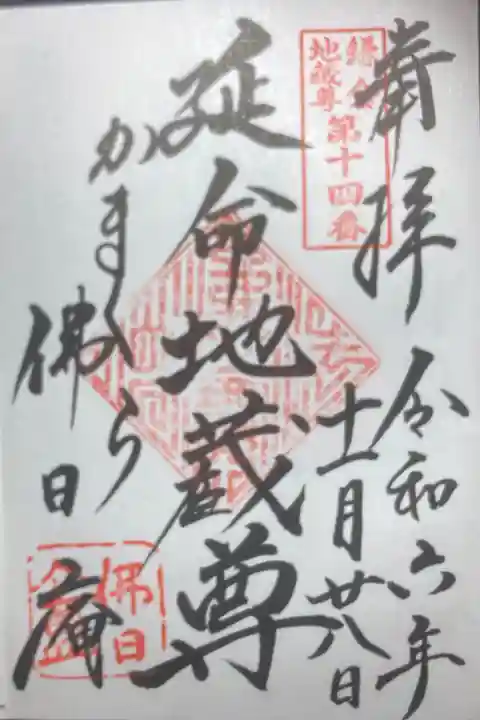 奉拝
令和六年
十一月廿八日
鎌倉
地蔵尊
第十四番
延命地蔵尊
かまくら
佛日庵
佛日